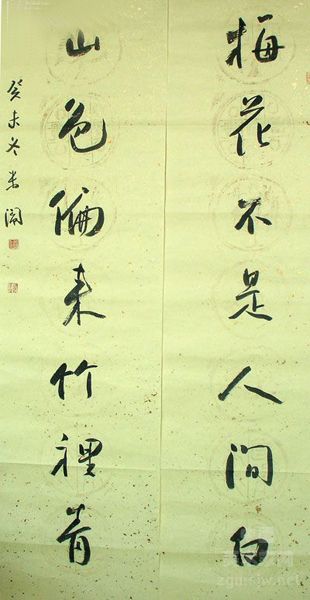 梅花不是人间白
山色偏来竹裡青
癸未冬米闹